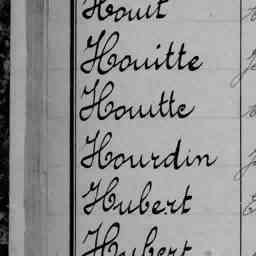 Houit
Houitte
Houitte
Hourdin
Hubert
Hubert